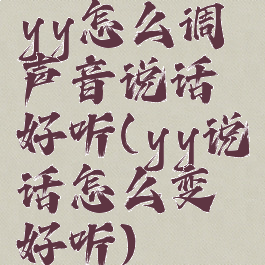 yy怎么调
声音说话
好听(yy说
话怎么变
好听)